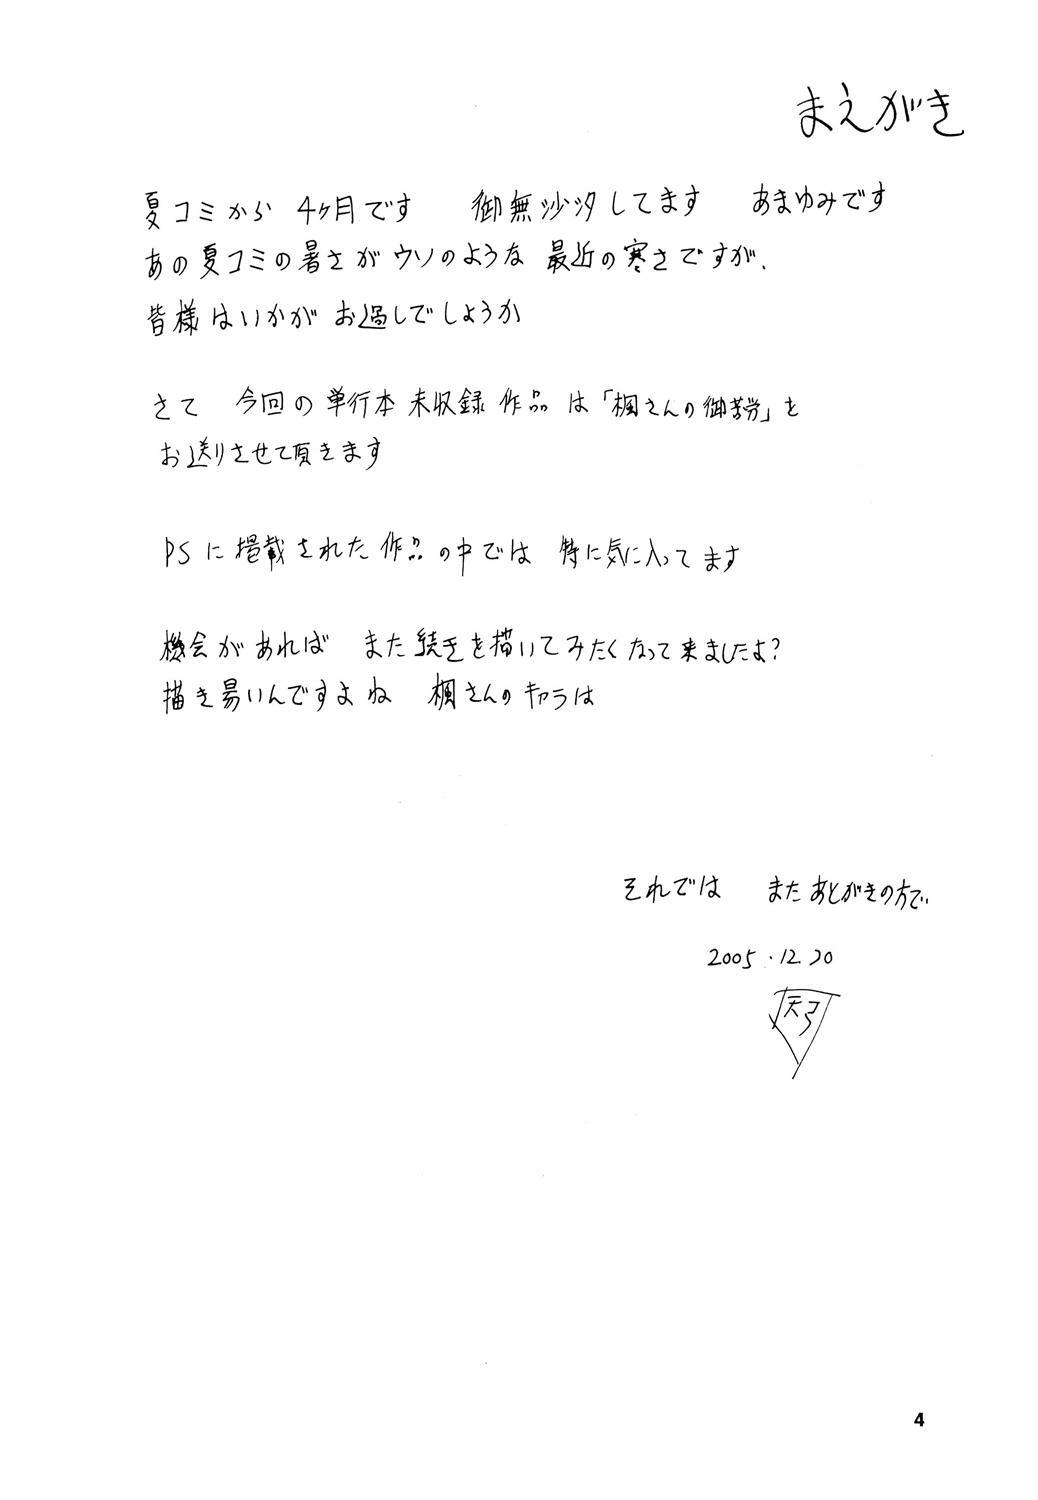 まえがき
夏コミから 4ヶ月です 御無沙汰してます あまゆみです
あの夏コミの暑さがウソのような 最近の寒さですが、
皆様はいかがお過しでしょうか
さて 今回の単行本未収録作品は「楓さんの御苦労」を
お送りさせて頂きます
PSに掲載された作品の中では 特に気に入ってます
機会があれば また続きを描いてみたくなって来ましたよ?
描き易いんですよね 楓さんのキャラは
それでは またあとがきの方で
2005.12.20
天弓
4